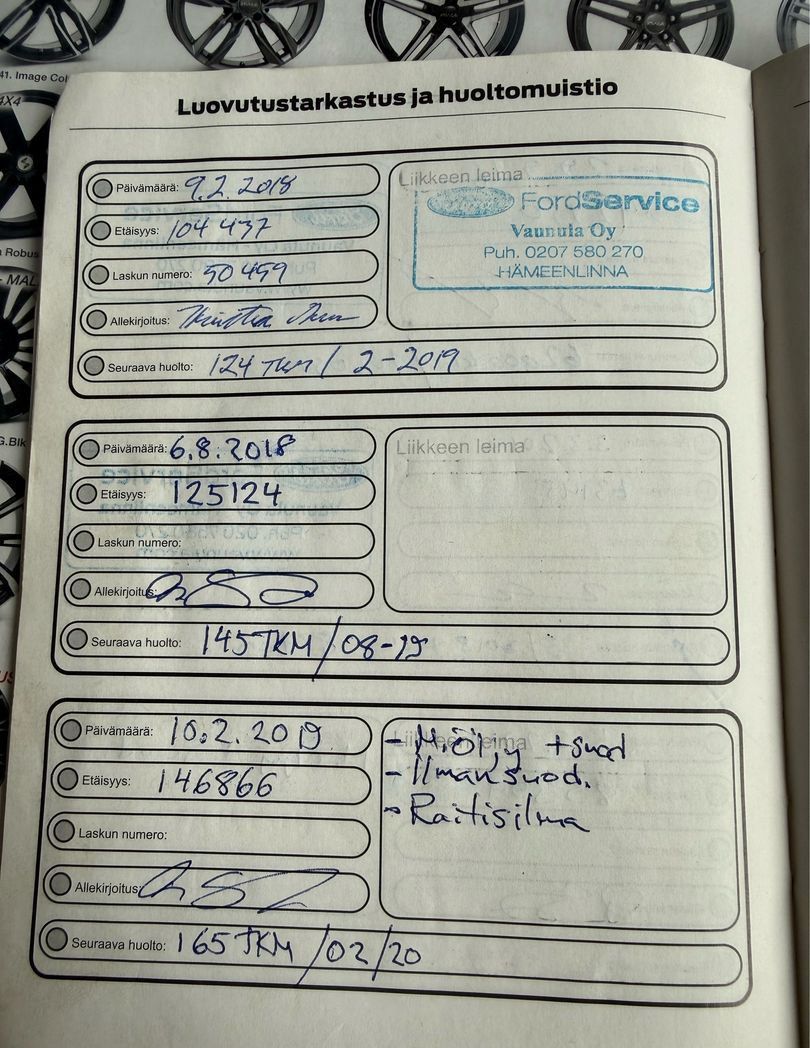 41. Image Col
4X4
Luovutustarkastus ja huoltomuistio
Päivämäärä: 9.2.2018
Etäisyys: 104 437
Laskun numero: 50 459
Allekirjoitus:
Seuraava huolto: 124 TKM / 2-2019
Liikkeen leima
FordService
Vaunula Oy
Puh. 0207 580 270
HÄMEENLINNA
a Robus
- MAL
G.Blk
Päivämäärä: 6.8.2018
Etäisyys: 125124
Laskun numero:
Allekirjoitus:
Seuraava huolto: 145TKM / 08-19
Liikkeen leima
Päivämäärä: 10.2.2019
Etäisyys: 146866
Laskun numero:
Allekirjoitus:
Seuraava huolto: 165 TKM / 02/20
Liikkeen leima
- M.öljy + suod
- Ilmansuod.
- Raitisilma